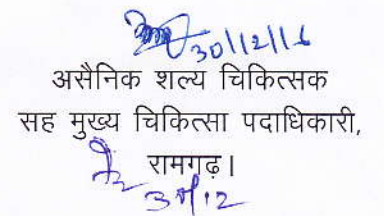 30/12/16
असैनिक शल्य चिकित्सक
सह मुख्य चिकित्सा पदाधिकारी,
रामगढ़।
30/12